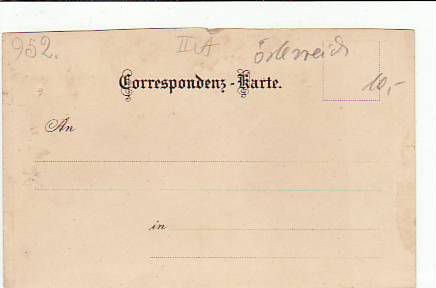 952. II A Österreich
Correspondenz-Karte.
10,-
An
in